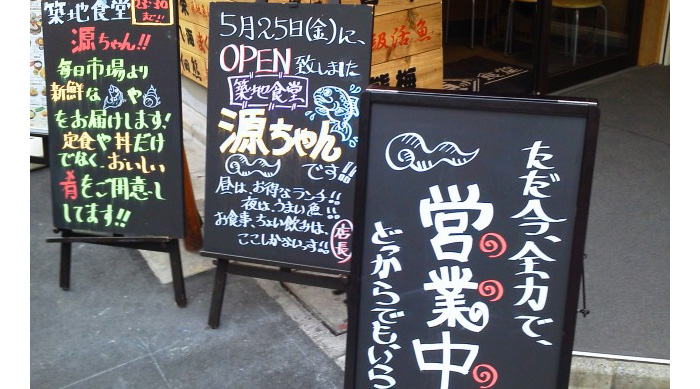 築地食堂
23:30
まで!!
源ちゃん!!
毎日市場より
新鮮な や
をお届けします!
定食や丼だけ
でなく、おいしい
肴をご用意し
してます!!
5月25日(金)に、
OPEN致しました
築地食堂
源ちゃん
です!!
昼は、お得なランチ!!
夜は、うまい魚!!
お食事、ちょい飲みは、
ここしかないっす!!
店長
級活魚
ただ今、全力で、
営業中
どっからでもいら